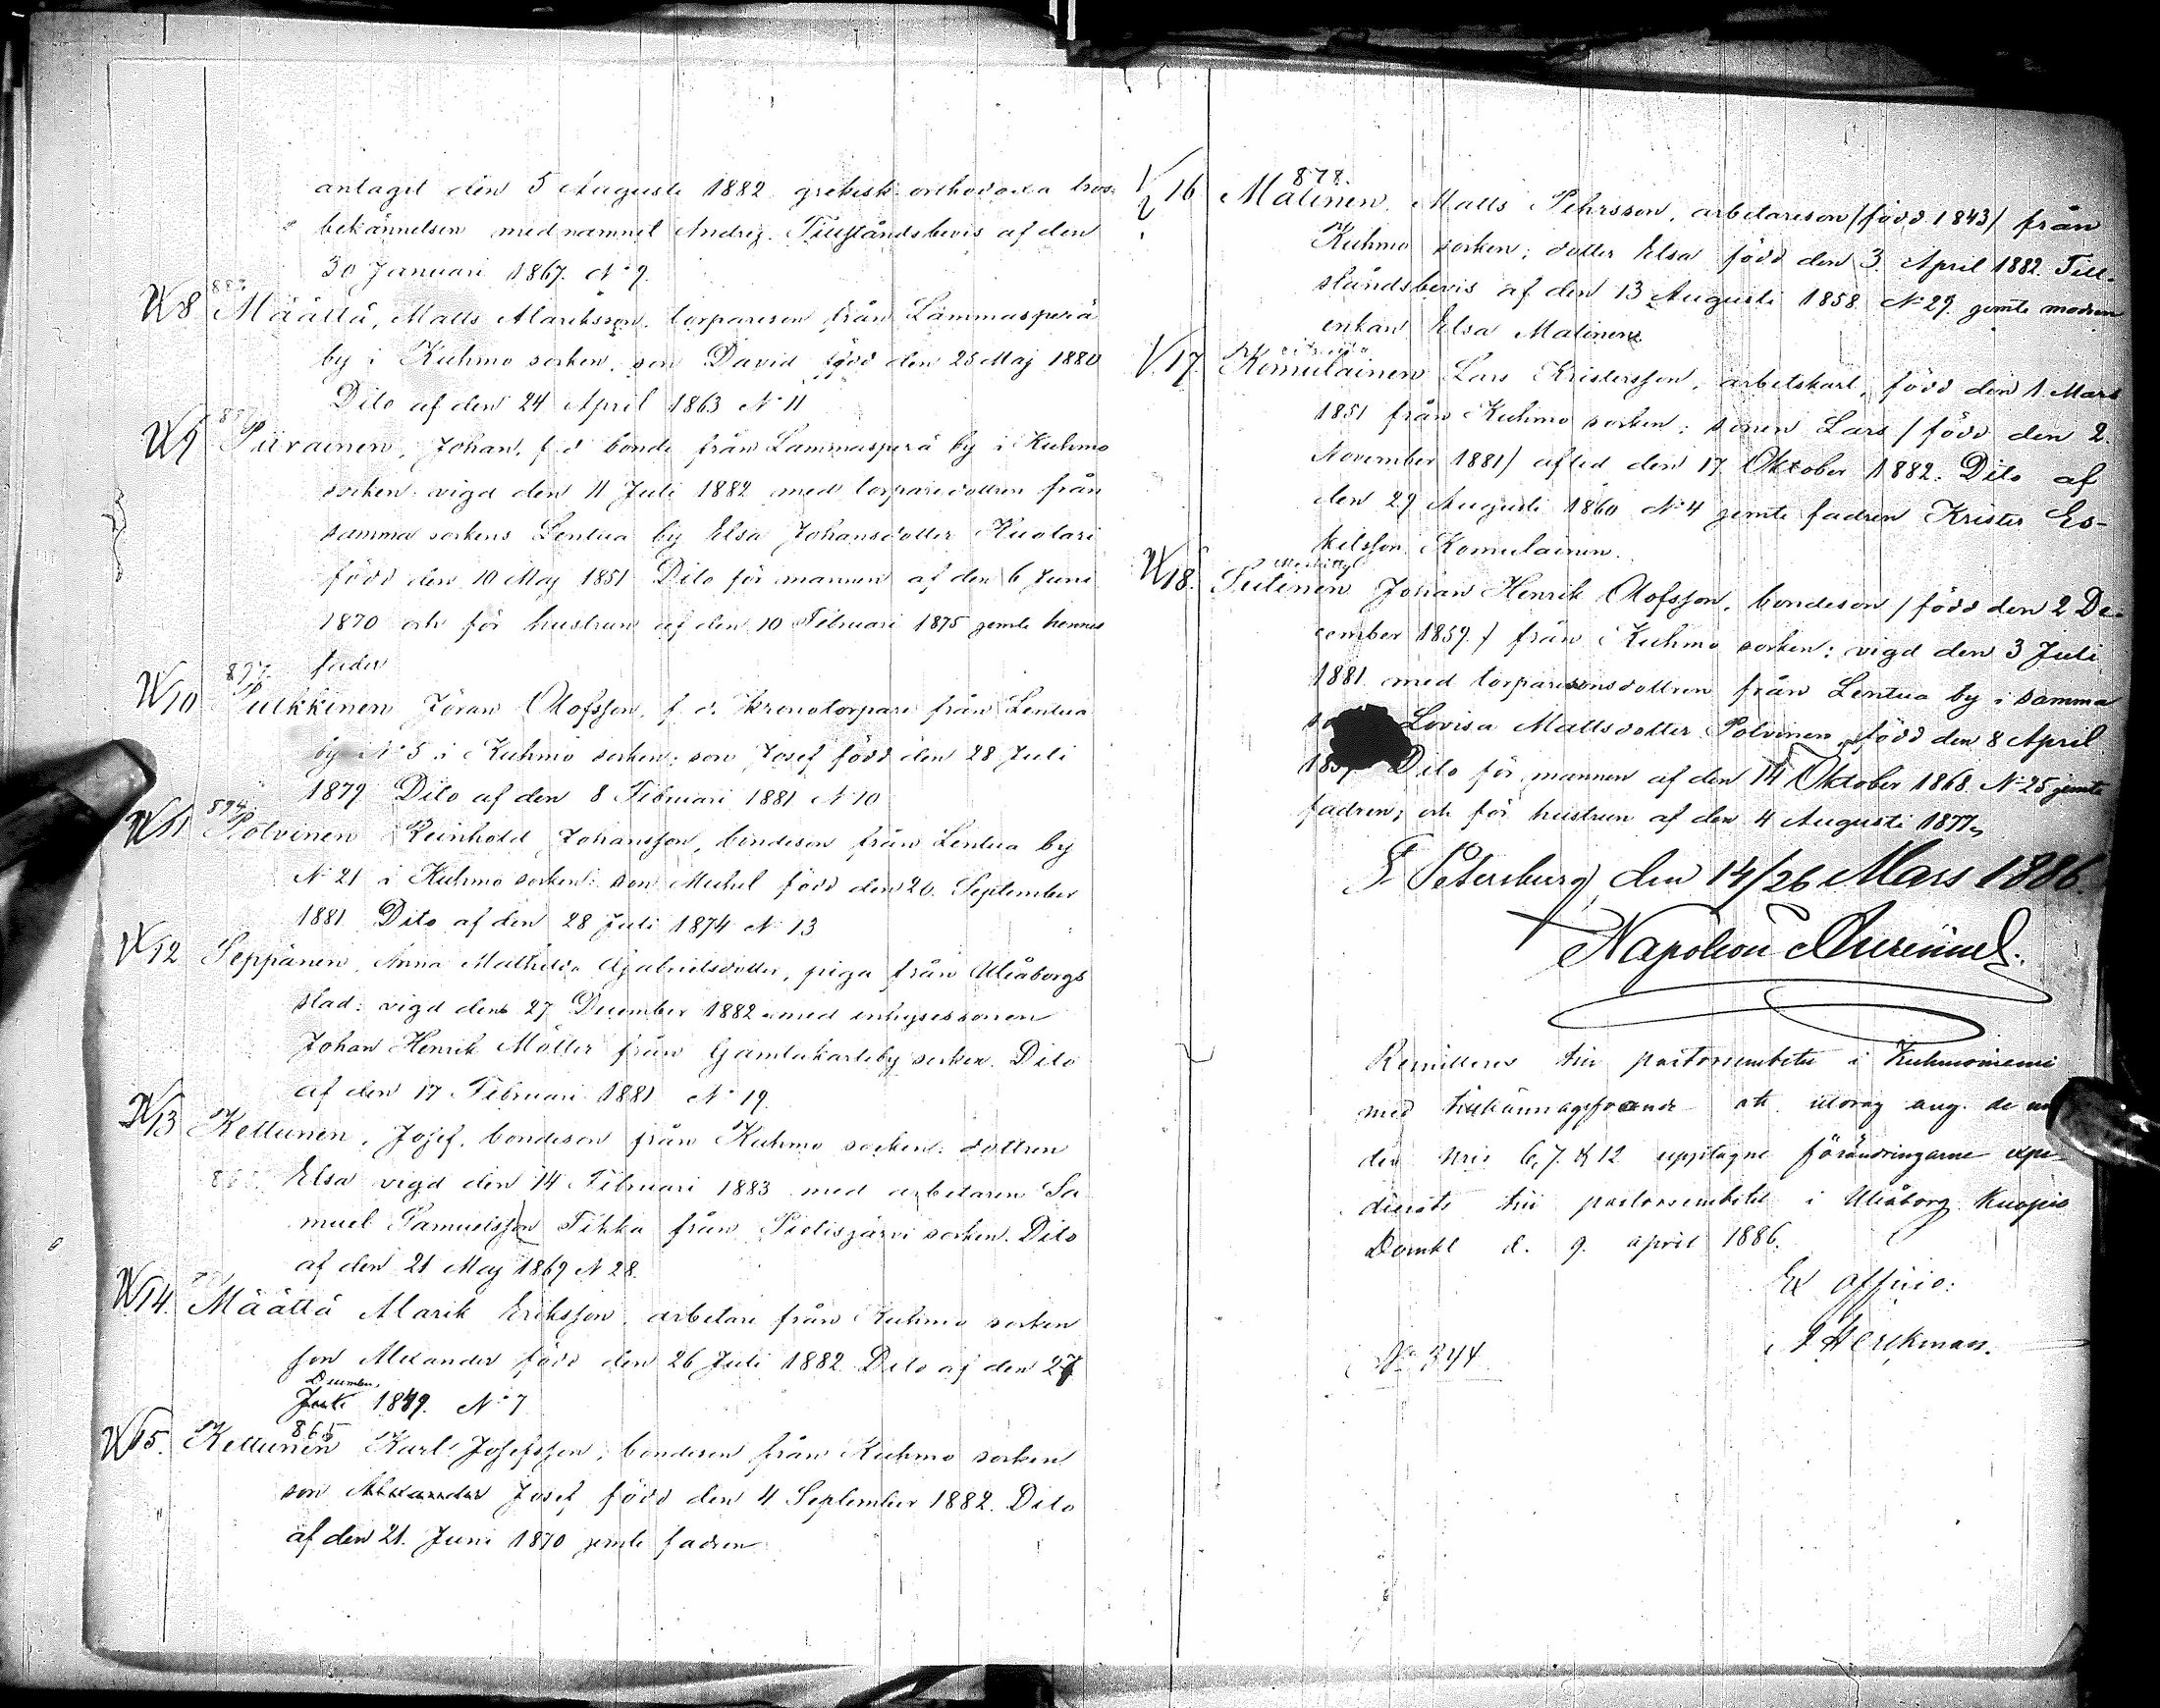 antagit den 5 Augusti 1882 grekisk-orthodoxa tros-
bekännelsen med namnet Andrej. Tillståndsbevis af den
30 Januari 1867. No 9.
8 Määttä, Matts Alariksson, torpareson från Lammasperä
by i Kuhmo socken, son David född den 25 Maj 1880
Dito af den 24 April 1863 No 11
9 Piirainen, Johan, f. d. bonde från Lammasperä by i Kuhmo
socken: vigd den 11 Juli 1882 med torparedottren från
samma sockens Lentua by Elsa Johansdotter Kuolari
född den 10 Maj 1851 Dito för mannen af den 6 Juni
1870 och för hustrun af den 10 Februari 1875 jemte hennes
fader
897.
10 Pulkkinen Jöran Olofsson, f. d. kronotorpare från Lentua
by No 5 i Kuhmo socken: son Josef född den 28 Juli
1879 Dito af den 8 Februari 1881 No 10
894.
11 Polvinen Reinhold Johansson, bondeson från Lentua by
No 21 i Kuhmo socken: son Mickel född den 20. September
1881 Dito af den 28 Juli 1874 No 13
12 Seppänen, Anna Mathilda Gabrielsdotter, piga från Uleåborgs
stad: vigd den 27 December 1882 med inhysessonen
Johan Henrik Möller från Gamlakarleby socken. Dito
af den 17 Februari 1881 No 19.
13 Kettunen, Josef, bondeson från Kuhmo socken: dottren
Elsa vigd den 14 Februari 1883 med arbetaren Sa
muel Samuelsson Tikka från Pielisjärvi socken. Dito
af den 21 Maj 1869 N 28.
14. Määttä Alarik Eriksson, arbetare från Kuhmo socken
son Alexander född den 26 Juli 1882 Dito af den 27
December
Juli 1849. No 7
865
15. Kettunen Karl Josefsson, bondeson från Kuhmo socken
son Alexander Josef född den 4 September 1882. Dito
af den 21. Juni 1870 jemte fadren
878.
16 Malinen, Matts Pehrsson, arbetareson (född 1843) från
Kuhmo socken; dotter Elsa född den 3. April 1882. Till-
ståndsbevis af den 13 Augusti 1858 No 29. jemte modren
enkan Elsa Malinen
17. Komulainen Lars Kristersson, arbetskarl, född den 1. Mars
1851 från Kuhmo socken: sonen Lars (född den 2.
November 1881) afled den 17 Oktober 1882. Dito af
den 29 Augusti 1860 No 4 jemte fadren Krister Es-
kilsson Komulainen.
18. Piitinen Johan Henrik Olofsson, bondeson (född den 2 De-
cember 1859.) från Kuhmo socken: vigd den 3 Juli
1881 med torparesonsdottren från Lentua by i samma
Lovisa Mattsdotter Polvinen född den 8 April
Dito för mannen af den 14 Oktober 1868. No 25 jemte
fadren, och för hustrun af den 4 Augusti 1877.
S:t Petersburg, den 14/26 Mars 1886.
Napoleon
Remitteres till pastorsembetet i Kuhmoniemi
med tillkännagifvande att utdrag ang. de un
der Nris 6, 7 & 12 upptagne förändringarne expe-
dierats till pastorsembetet i Uleåborg. Kuopio
Domkl d. 9. april 1886.
Ex officio:
J Herckman.
No 344